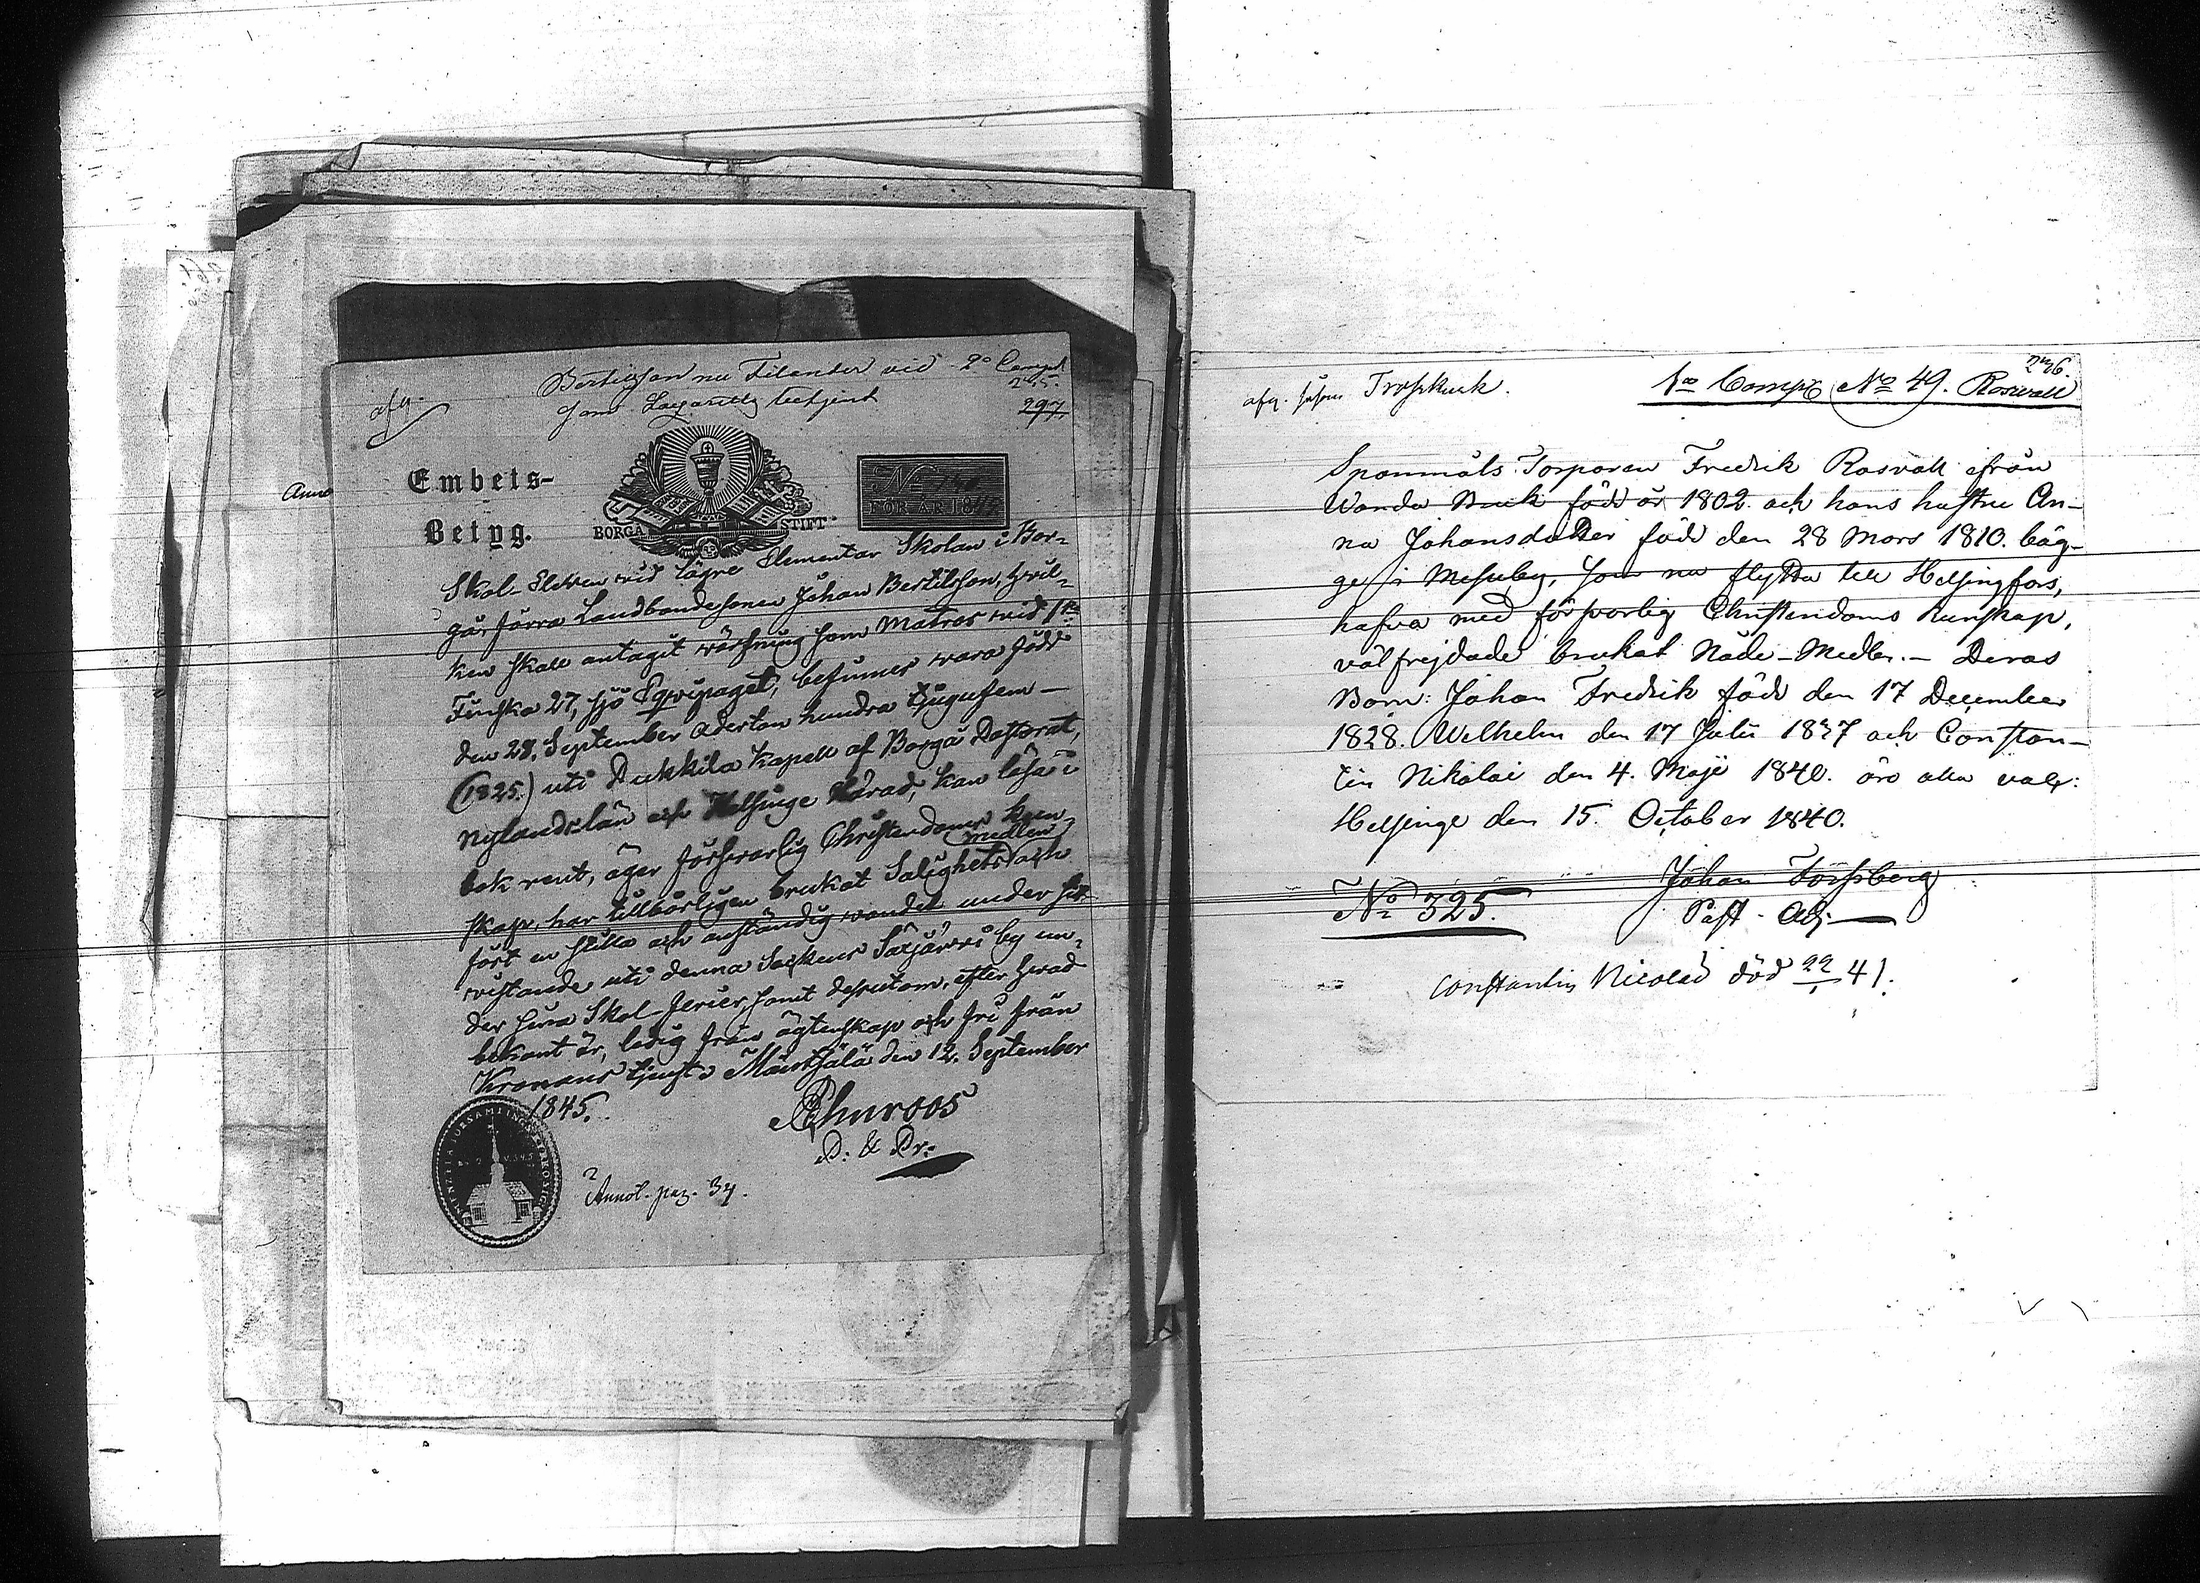 Bertilsson nu Filander vid 2a Comp:
295.
afg. som Lazaretts betjent
297
Embets-
Betyg.
BORGÅ STIFT
No
FÖR ÅR 18
Anno
Skol-Eleven vid lägre Elementar Skolan i Bor-
gå, förra Landbondesonen Johan Bertilsson, hvil-
ken skall antagit värfning som Matros vid 1ta
Finska 27, sjö Eqvipaget, befinnes vara född
den 28. September Adertonhundra tjugufem
(1825) uti Pukkila Kapell af Borgå Pastorat,
Nylands län och Helsinge Härad, kan läsa i
bok rent, äger försvarlig Christendoms kun-
skap, har tillbörligen brukat Salighets medlen och
fört en stilla och anständig vandel under sit
vistande uti denna Sockens Sääjärvi by un-
der sina Skol-ferier, samt dessutom, efter hvad
bekant är, ledig från ägtenskap och fri från
Kronans tjenst. Mäntsälä den 12. September
1845.
AChuroos
P. & Pr.
Annot. pag. 34.
afg. såsom Trosskusk.
1a Comp: No 49. Roswall
296.
Spanmåls Torparen Fredrik Rosvall ifrån
Wanda född år 1802. och hans hustru An-
na Johansdotter född den 28 Mars 1810. bäg-
ge i Messuby, som nu flytta till Helsingfors,
hafva med försvarlig Christendoms kunskap,
välfrejdade brukat Nåde-Medlen. Deras
Barn: Johan Fredrik född den 17 December
1828. Wilhelm den 17 Julii 1837 och Constan-
tin Nikolai den 4. Maji 1840. äro alla vacc:
Helsinge den 15. October 1840.
Johan Forssberg
No 325.
Past. Adj.
Constantin Nicolai död 22 41.